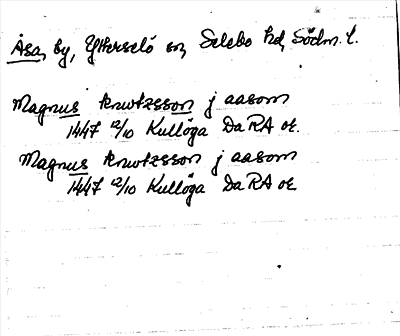 Åsa, by, Ytterselö sn, Selebo hd, Södm. l.
Magnus knwtzsson j aasom
1447 12/10 Kullöga Da RA or.
Magnus knwtzsson j aasom
1447 12/10 Kullöga Da RA or.